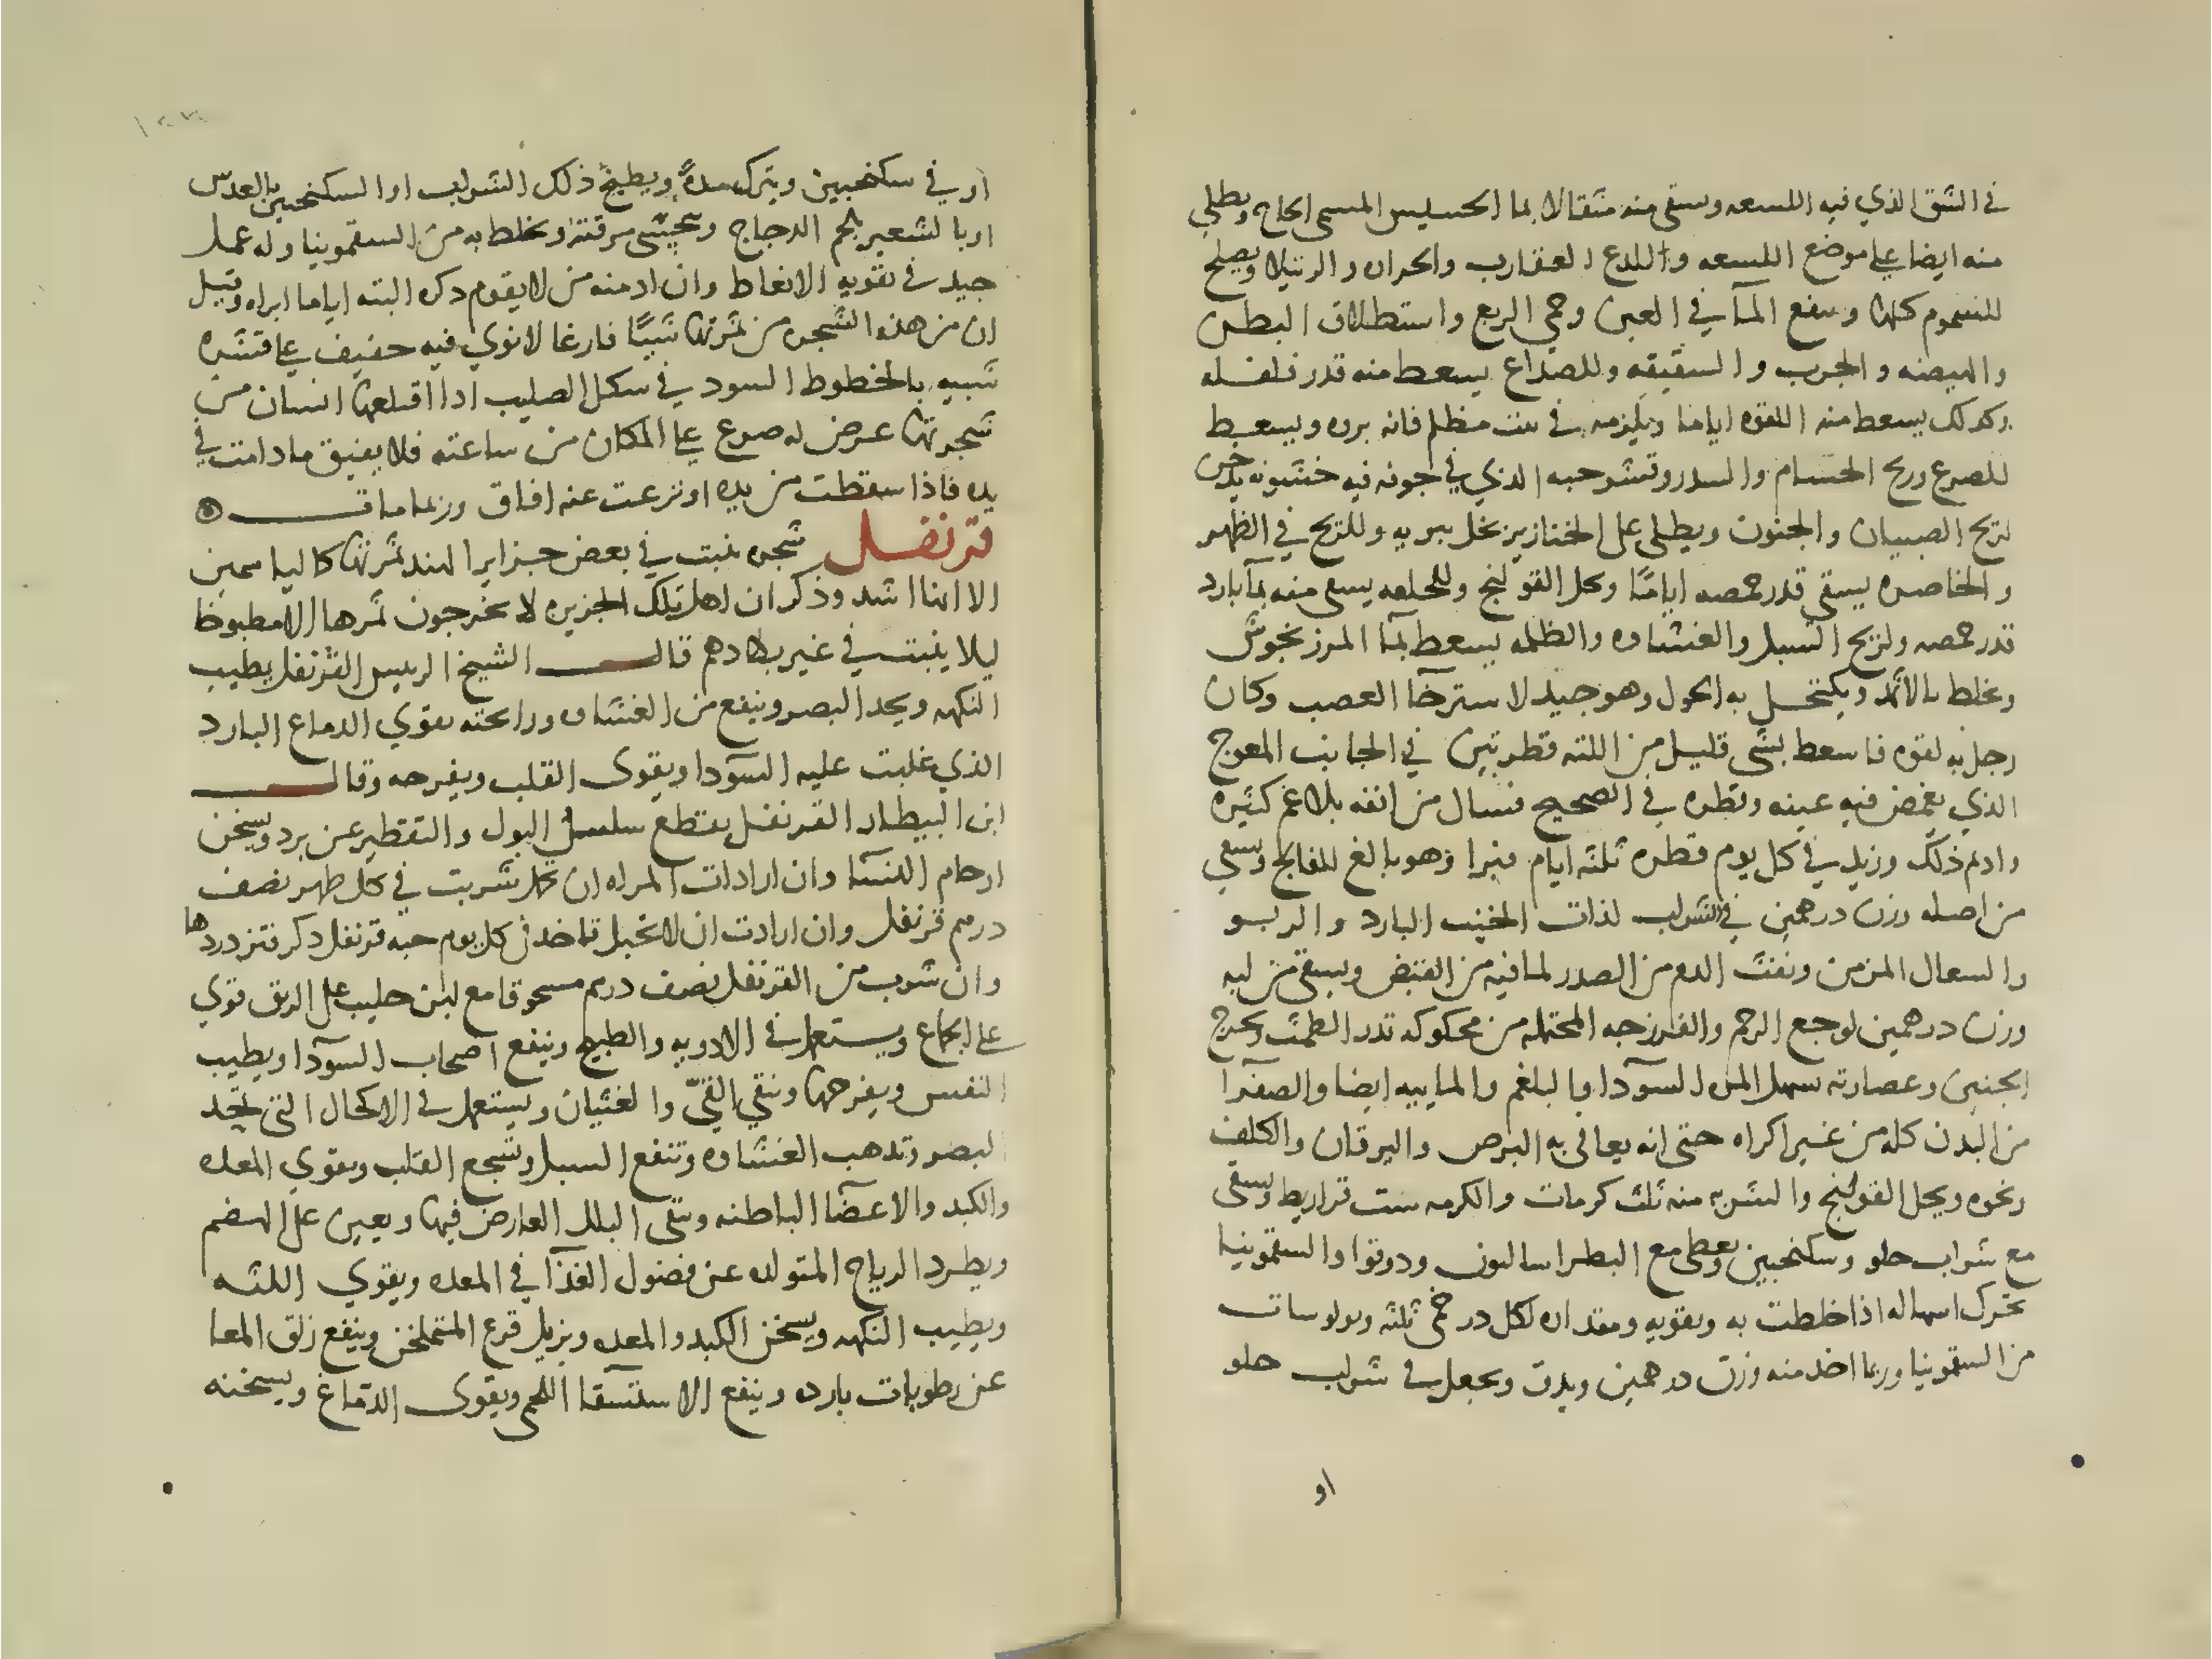 في الشق الذي فيه اللسعه وسقى منه مثقالا بما الحسليس المسمى الحاج ويطلي
منه ايضا على موضع اللسعه واللدع العقارب والحراره والرتيلا ويصلح
للسموم كلها وينفع المآ في العين وحمى الربع واستطلاق البطن
والهيضه والجرب والشقيقه وللصداع يسعط منه قدر فلفله
وكدلك يسعط منه اللقوه اياما ويلزمه في بيت مظلم فانه يروه ويسعط
للصرع وريح الحسام والسدر وقشر حبه الذي في جوفه فيه خشونه يدخن
لريح الصبيان والجنون ويطلى على الخنازير بخل يبريه وللريح في الظهر
والخاصره يسقى قدر حمصه اياما وبحل القولنج وللخلعه يسعى منه بمآ بارد
قدر حمصه ولريح السبل والغشاوه والظلمه يسعط بمآ المرزنجوش
ويخلط بالاثمد ويكتحل به الحول وهو جيد لاسترخآ العصب وكان
رجل به لقوه فاسعط بشي قليل من اللثه قطرتين في الجانب المعوج
الذي يغمض فيه عينه وقطره في الصحيح فسال من انفه بلاغم كثيره
وادم ذلك وزيد في كل يوم قطره ثلثه ايام فبرا وهو بالغ للفالج وسقي
من اصله وزن درهمين في الشراب لذات الجنب البارد والربو
والسعال المزمن ونفث الدم من الصدر لما فيه من القبض ويسقى من لبه
وزن درهمين لوجع الرحم والفرزجه المحتمله من محكوكه تدر الطمث وتخرج
الجنين وعصارته سهل المره السودا والبلغم والماييه ايضا والصفرآ
من البدن كله من غير اكراه حتى انه يعافى به البرص واليرقان والكلف
ونحوه ويحل القولنج والشربه منه ثلث كرمات والكرمه ست قراريط ويسقى
مع شراب حلو وسكنجبين ويعطى مع البطراسالون ودوقوا والسقمونيا
تحرك اسهاله اذا خلطت به وبقويه ومقداره لكل درخمى ثلثه وبولوسات
من السقمونيا وربما اخد منه وزن درهمين ويدق ويجعل في شراب حلو
او
او في سكنجبين ويترك مدة ويطبخ ذلك الشراب او السكنجبين بالعدس
او بالشعير بلحم الدجاج ويتحسى مرقته ويخلط به من السقمونيا وله عمل
جيد في تقويه الانعاظ وان ادمنه من لا يقوم دكره البته اياما ابراه وقيل
ان من هذه الشجره من ثمرتها شيئا فارغا لا نوى فيه خفيف على قشره
شبيه بالخطوط السود في شكل الصليب ادا اقتلعها انسان من
شجرتها عرض له صرع على المكان من ساعته فلا يفيق ما دامت في
يده فاذا سقطت من يده او نزعت عنه افاق وربما مات
قرنفل شجره ينبت في بعض جزاير الهند ثمرتها كالياسمين
الا انها اشد وذكر ان اهل تلك الجزيره لا يخرجون ثمرها الا مطبوخا
ليلا ينبت في غير بلادهم قال الشيخ الرييس القرنفل يطيب
النكهه ويحد البصر وينفع من الغشاوه ورائحته يقوي الدماغ البارد
الذي غلبت عليه السودا ويقوى القلب ويفرحه وقال
ابن البيطار القرنفل يقطع سلسل البول والتقطير عن برد ويسخن
ارحام النسآ وان ارادات المراه ان تحمل شربت في كل طهر نصف
درهم قرنفل وان ارادت ان لا تحبل تاخد في كل يوم حبه قرنفل دكر فتزدردها
وان شرب من القرنفل نصف درهم مسحوقا مع لبن حليب على الريق قوي
على الجماع ويستعمل في الادويه والطبيخ وينفع اصحاب السودا ويطيب
النفس ويفرحها وينقي القيّ والغثيان ويستعمل في الاكحال التي تحد
البصر وتدهب الغشاوه وتنفع السبل وتشجع القلب ويقوي المعده
والكبد والاعضآ الباطنه وينقى البلل العارض فيها ويعين على الهضم
ويطرد الرياح المتولده عن فضول الغذآ في المعده ويقوي اللثه
ويطيب النكهه ويسخن الكبد والمعده ويزيل قرع وينفع زلق المعا
عن رطوبات بارده وينفع الاستسقا اللحمي ويقوى الدماغ ويسخنه